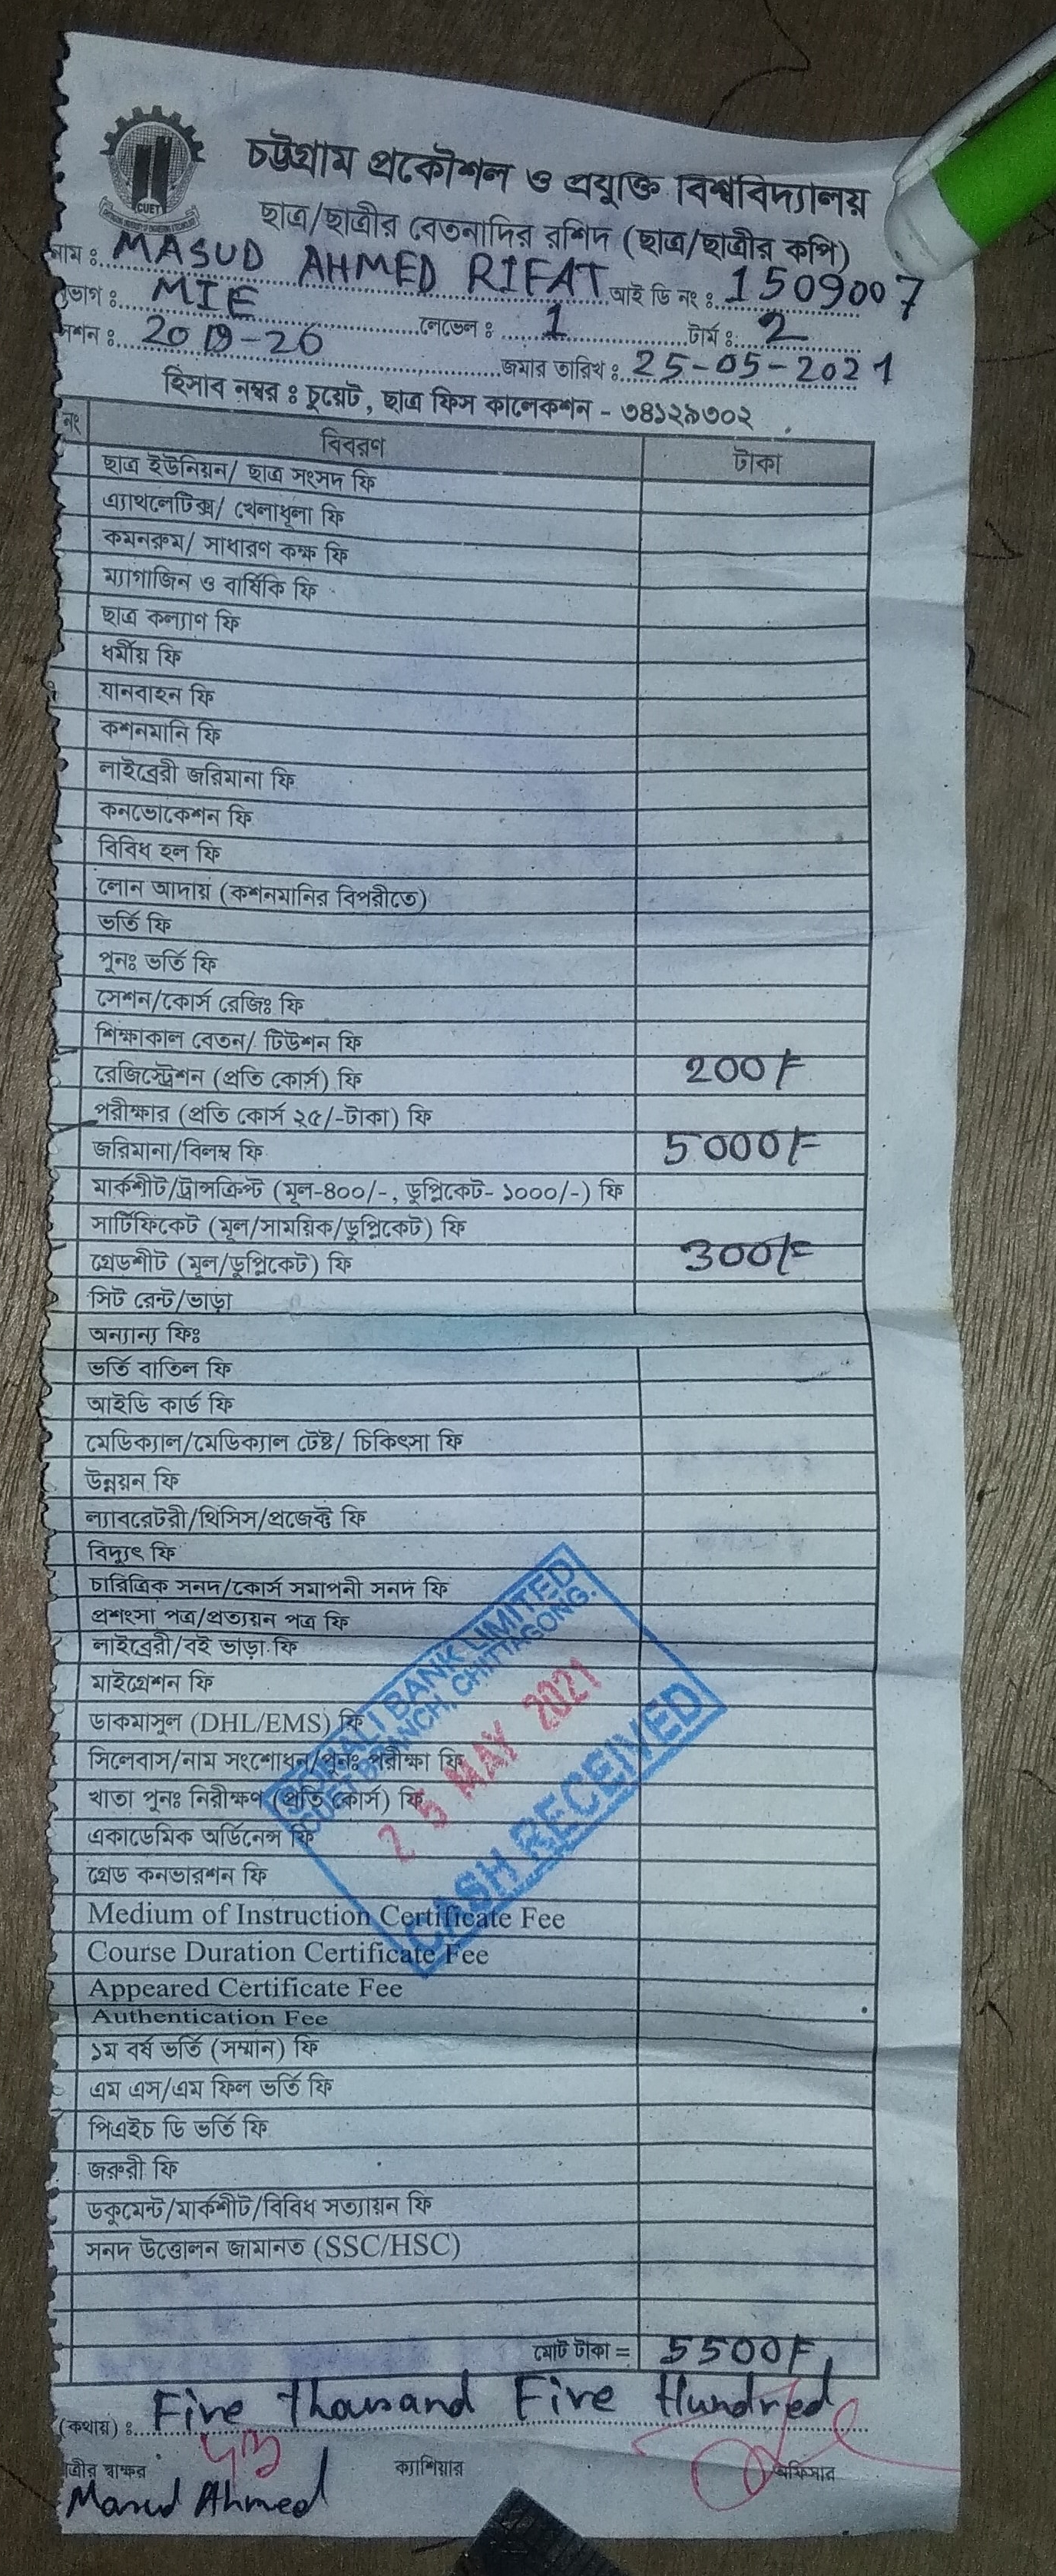 CUET
চট্টগ্রাম প্রকৌশল ও প্রযুক্তি বিশ্ববিদ্যালয়
ছাত্র/ছাত্রীর বেতনাদির রশিদ (ছাত্র/ছাত্রীর কপি)
নাম : MASUD AHMED RIFAT আই ডি নং : 1509007
ভাগ : MIE লেভেল : 1 টার্ম : 2
সশন : 2019-20 জমার তারিখ : 25-05-2021
হিসাব নম্বর : চুয়েট, ছাত্র ফিস কালেকশন - ৩৪১২৯৩০২
নং বিবরণ টাকা
ছাত্র ইউনিয়ন/ ছাত্র সংসদ ফি
এ্যাথলেটিক্স/ খেলাধূলা ফি
কমনরুম/ সাধারণ কক্ষ ফি
ম্যাগাজিন ও বার্ষিকি ফি
ছাত্র কল্যাণ ফি
ধর্মীয় ফি
যানবাহন ফি
কশনমানি ফি
লাইব্রেরী জরিমানা ফি
কনভোকেশন ফি
বিবিধ হল ফি
লোন আদায় (কশনমানির বিপরীতে)
ভর্তি ফি
পুনঃ ভর্তি ফি
সেশন/কোর্স রেজিঃ ফি
শিক্ষাকাল বেতন/ টিউশন ফি
রেজিস্ট্রেশন (প্রতি কোর্স) ফি 200/=
পরীক্ষার (প্রতি কোর্স ২৫/-টাকা) ফি
জরিমানা/বিলম্ব ফি 5000/=
মার্কশীট/ট্রান্সক্রিপ্ট (মূল-৪০০/-, ডুপ্লিকেট- ১০০০/-) ফি
সার্টিফিকেট (মূল/সাময়িক/ডুপ্লিকেট) ফি
গ্রেডশীট (মূল/ডুপ্লিকেট) ফি 300/=
সিট রেন্ট/ভাড়া
অন্যান্য ফিঃ
ভর্তি বাতিল ফি
আইডি কার্ড ফি
মেডিক্যাল/মেডিক্যাল টেষ্ট/ চিকিৎসা ফি
উন্নয়ন ফি
ল্যাবরেটরী/থিসিস/প্রজেক্ট ফি
বিদ্যুৎ ফি
চারিত্রিক সনদ/কোর্স সমাপনী সনদ ফি
প্রশংসা পত্র/প্রত্যয়ন পত্র ফি
লাইব্রেরী/বই ভাড়া ফি
মাইগ্রেশন ফি
ডাকমাসুল (DHL/EMS) ফি
সিলেবাস/নাম সংশোধন/পুনঃ পরীক্ষা ফি
খাতা পুনঃ নিরীক্ষণ (প্রতি কোর্স) ফি
একাডেমিক অর্ডিনেন্স ফি
গ্রেড কনভারশন ফি
SONALI BANK LIMITED
CUET BRANCH, CHITTAGONG.
25 MAY 2021
CASH RECEIVED
Medium of Instruction Certificate Fee
Course Duration Certificate Fee
Appeared Certificate Fee
Authentication Fee
১ম বর্ষ ভর্তি (সম্মান) ফি
এম এস/এম ফিল ভর্তি ফি
পিএইচ ডি ভর্তি ফি
জরুরী ফি
ডকুমেন্ট/মার্কশীট/বিবিধ সত্যায়ন ফি
সনদ উত্তোলন জামানত (SSC/HSC)
মোট টাকা = 5500/=
(কথায়) : Five thousand Five Hundred
ত্রীর স্বাক্ষর ক্যাশিয়ার অফিসার
Masud Ahmed